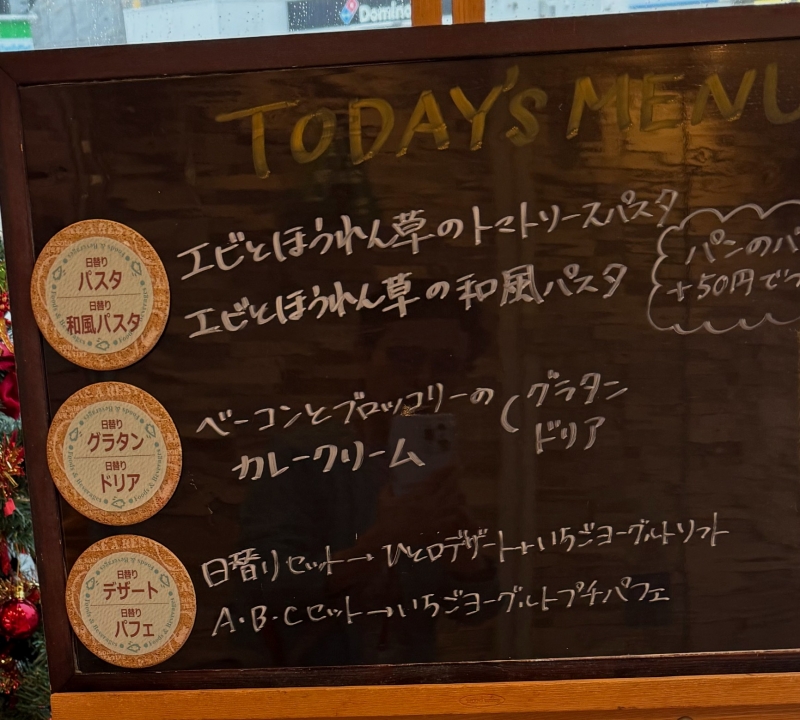 Domino
TODAY'S MENU
日替り
パスタ
日替り
和風パスタ
エビとほうれん草のトマトソースパスタ
エビとほうれん草の和風パスタ
パンのパ
+50円でつ
日替り
グラタン
日替り
ドリア
ベーコンとブロッコリーの
カレークリーム
グラタン
ドリア
日替り
デザート
日替り
パフェ
日替りセット→ひと口デザート+いちごヨーグルトソフト
A・B・Cセット→いちごヨーグルトプチパフェ